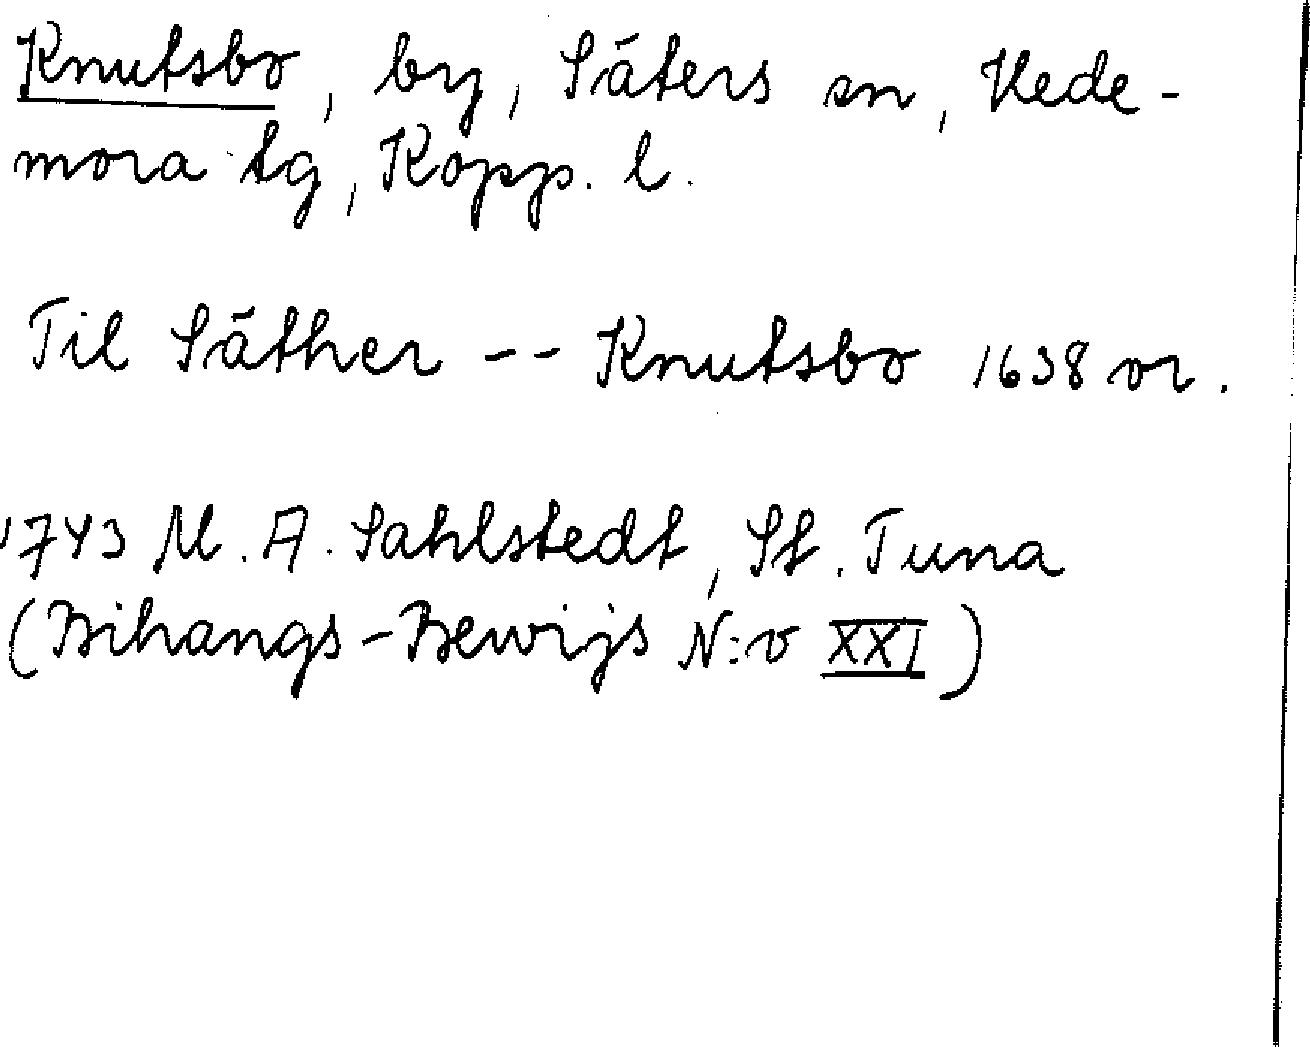 Knutsbo, by, Säters sn, Hede-
mora tg, Kopp. l.
Til Säther -- Knutsbo 1638 or.
1743 M. A. Sahlstedt, St. Tuna
(Bihangs-Bewijs N:o XXI)